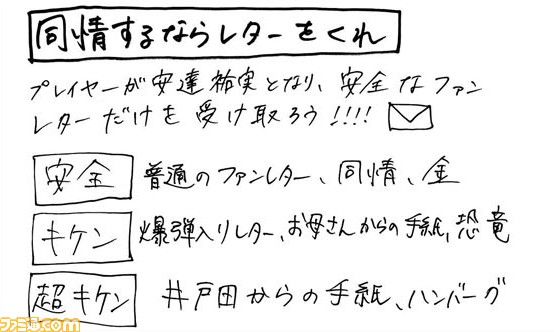 同情するならレターをくれ
プレイヤーが安達祐実となり、安全なファン
レターだけを受け取ろう!!!!
安全 普通のファンレター、同情、金
キケン 爆弾入りレター、お母さんからの手紙、恐竜
超キケン 井戸田からの手紙、ハンバーグ
ファミ通.com